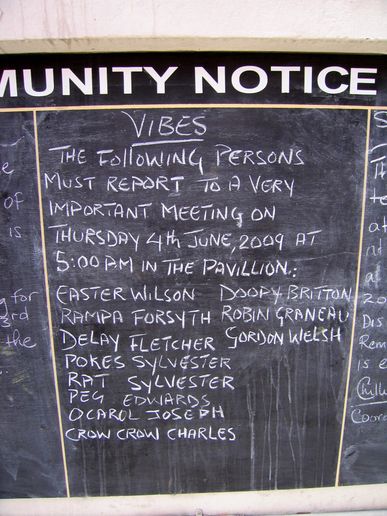 MUNITY NOTICE
VIBES
THE FOLLOWING PERSONS
MUST REPORT TO A VERY
IMPORTANT MEETING ON
THURSDAY 4th JUNE, 2009 AT
5:00PM IN THE PAVILLION.:
EASTER WILSON DOOPY BRITTON
RAMPA FORSYTH ROBIN GRANEAU
DELAY FLETCHER GORDON WELSH
POKES SYLVESTER
RAT SYLVESTER
PEG EDWARDS
OCAROL JOSEPH
CROW CROW CHARLES
of
is
for
the
is e
Coord